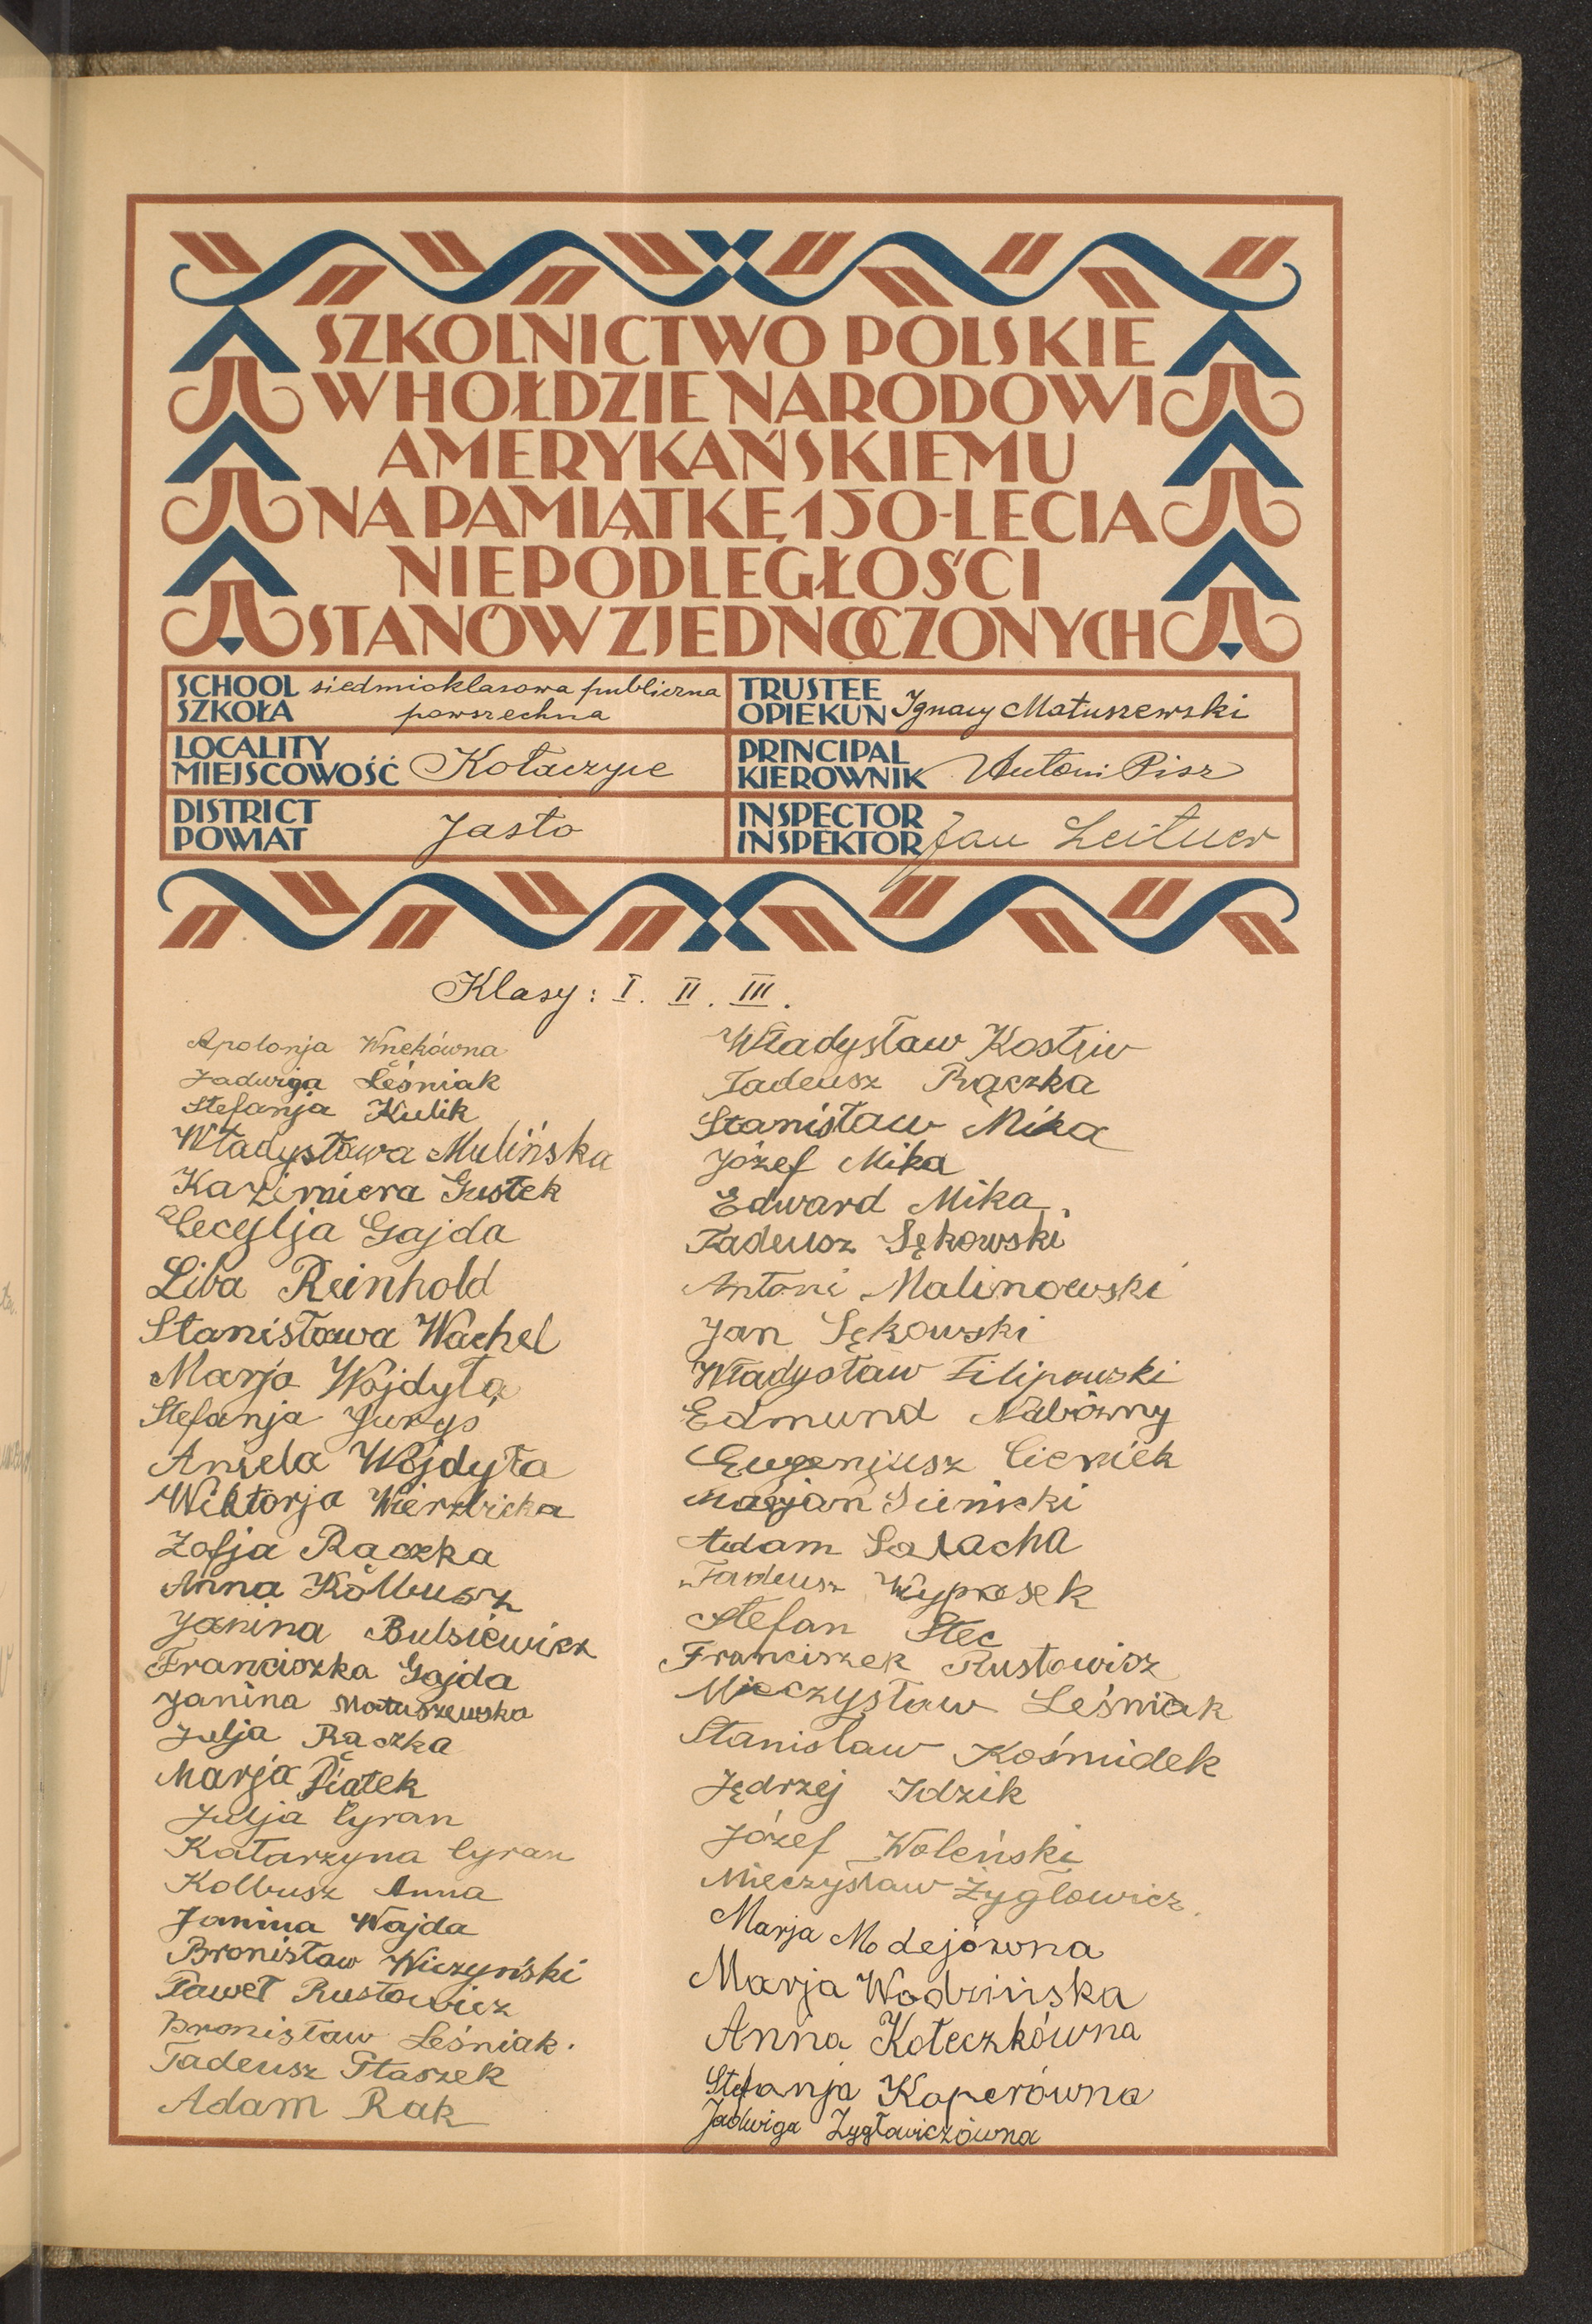 SZKOLNICTWO POLSKIE
W HOŁDZIE NARODOWI
AMERYKAŃSKIEMU
NA PAMIĄTKĘ 150-LECIA
NIEPODLEGŁOŚCI
STANÓW ZJEDNOCZONYCH
SCHOOL SZKOŁA siedmioklasowa publiczna
powszechna
TRUSTEE OPIEKUN Ignacy Matuszewski
LOCALITY MIEJSCOWOŚĆ Kołaczyce
PRINCIPAL KIEROWNIK Antoni Pisz
DISTRICT POWIAT Jasło
INSPECTOR INSPEKTOR Jan Leitner
Klasy: I. II. III.
Apolonja Wnękówna
Jadwiga Leśniak
Stefanja Kulik
Władysława Mulińska
Kazimiera Gustek
Cecylja Gajda
Liba Reinhold
Stanisława Wachel
Marja Wojdyła
Stefanja Juryś
Aniela Wojdyła
Wiktorja Wierzbicka
Zofja Rączka
Anna Kolbusz
Janina Bulsiewicz
Franciszka Gajda
Janina Matuszewska
Julja Rączka
Marja Piątek
Julja Cyran
Katarzyna Cyran
Kolbusz Anna
Janina Wajda
Bronisław Wiczyński
Paweł Rustowicz
Bronisław Leśniak.
Tadeusz Ptaszek
Adam Rak
Władysław
Tadeusz Rączka
Stanisław Mika
Józef Mika
Edward Mika.
Tadeusz Sękowski
Antoni Malinowski
Jan Sękowski
Władysław Filipowski
Edmund Nabożny
Eugenjusz
Marjan Sienicki
Adam Saracha
Tadeusz Wyprosek
Stefan Stec
Franciszek Rustowicz
Mieczysław Leśniak
Stanisław Kośmidek
Jędrzej Idzik
Józef Woleński
Mieczysław Zygłowicz.
Marja Modejówna
Marja Wodzińska
Anna Kołeczkówna
Stefanja Kaperówna
Jadwiga Zygłowiczówna